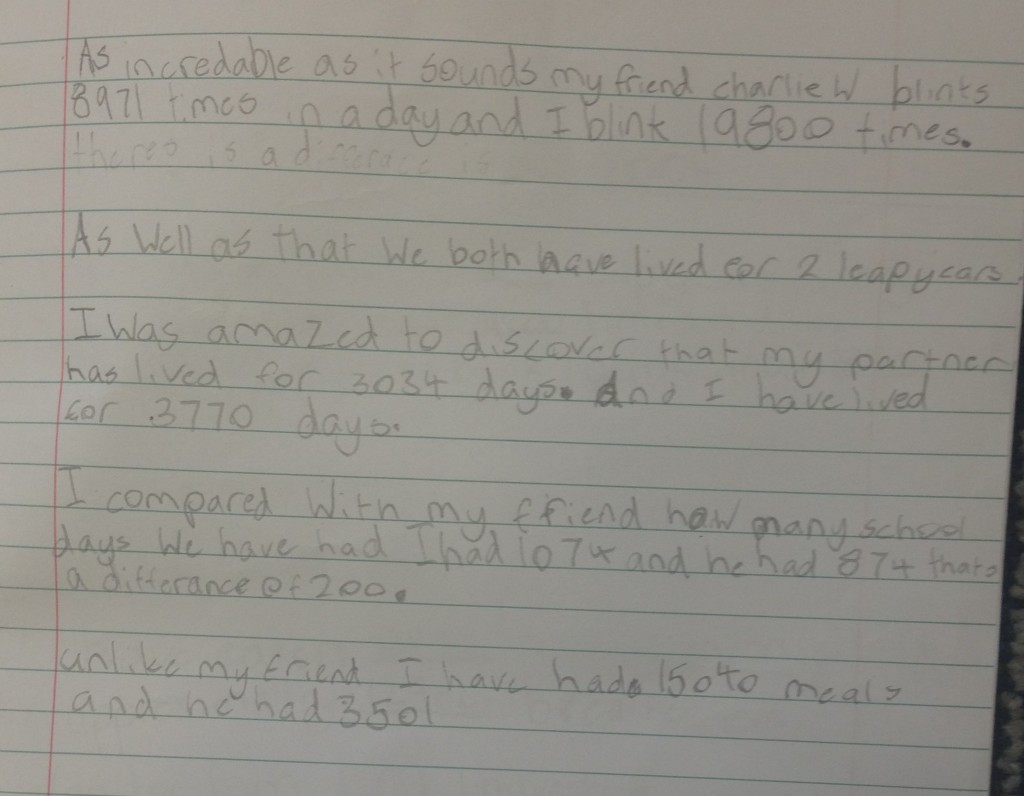 As incredable as it sounds my friend charlie W blinks
8971 times in a day and I blink 19800 times.
theres is a differance is
As Well as that We both have lived for 2 leapyears
I Was amazed to discover that my partner
has lived for 3034 days. And I have lived
for 3770 days.
I compared With my friend how many school
days We have had I had 1074 and he had 874 thats
a differance of 200.
unlike my friend I have had 15040 meals
and he had 3501